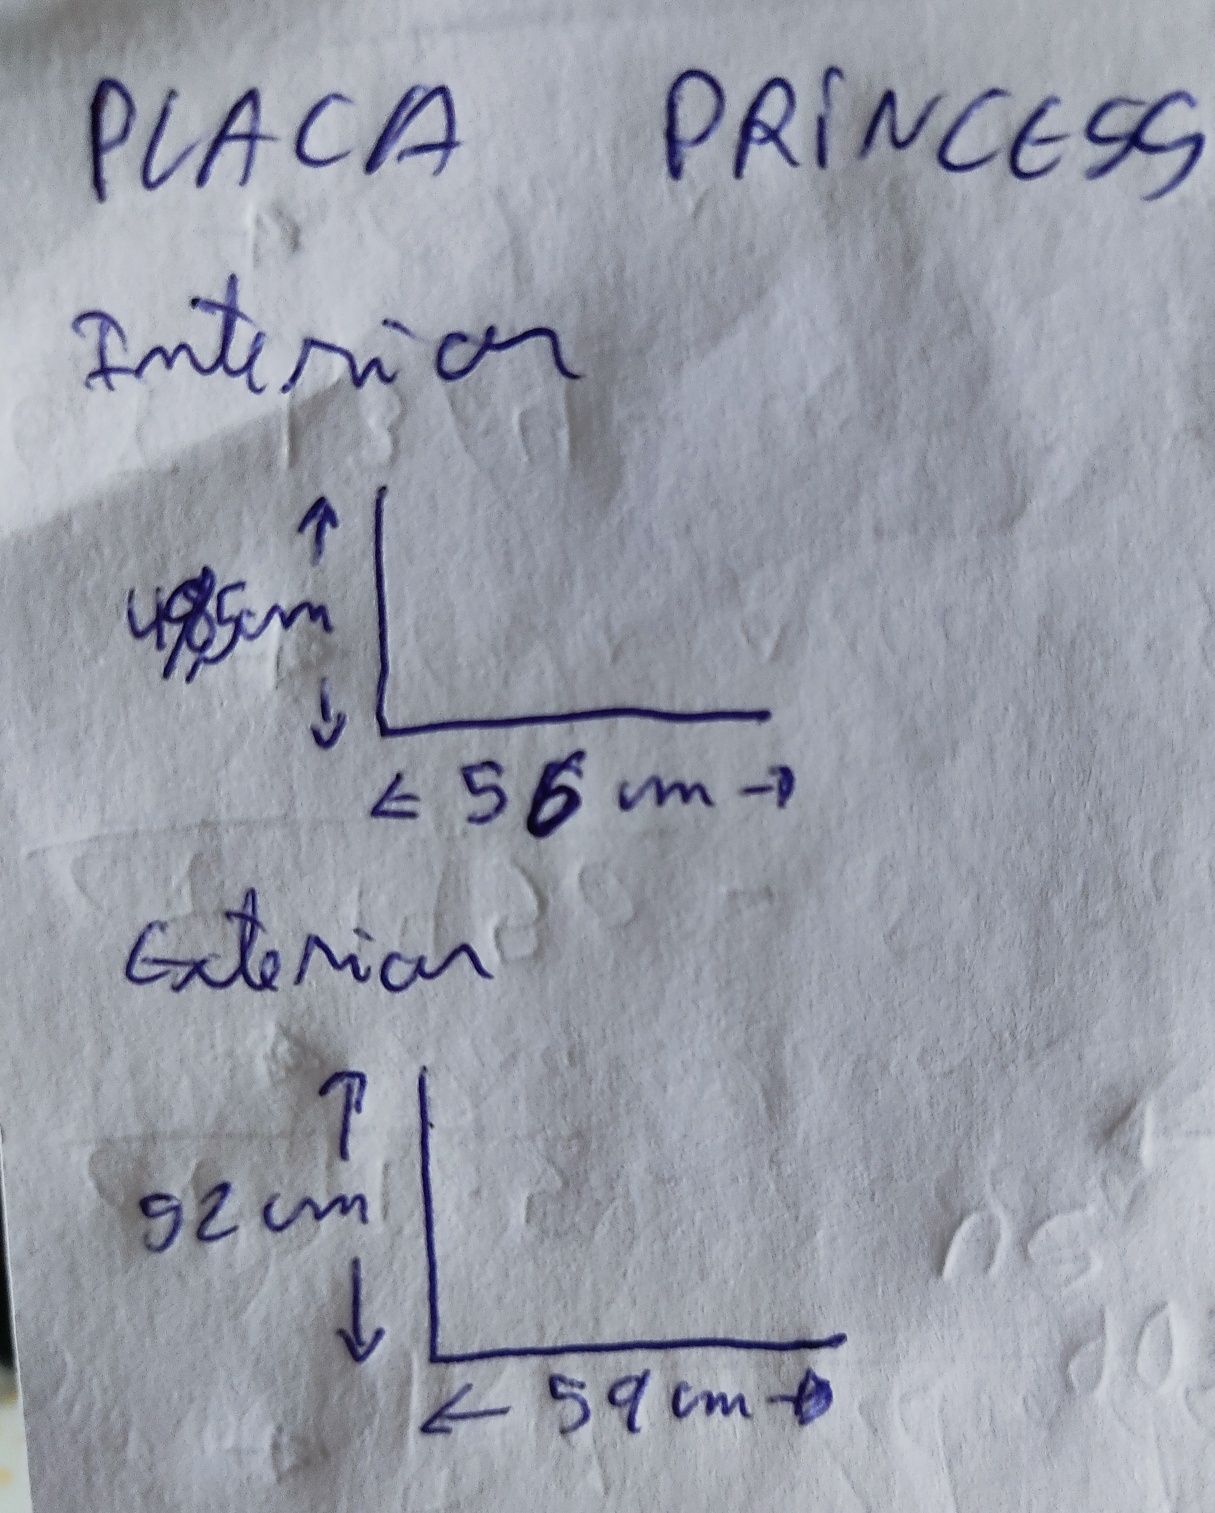 PLACA PRINCESS
Interior
cm
56 cm
Exterior
92 cm
59 cm